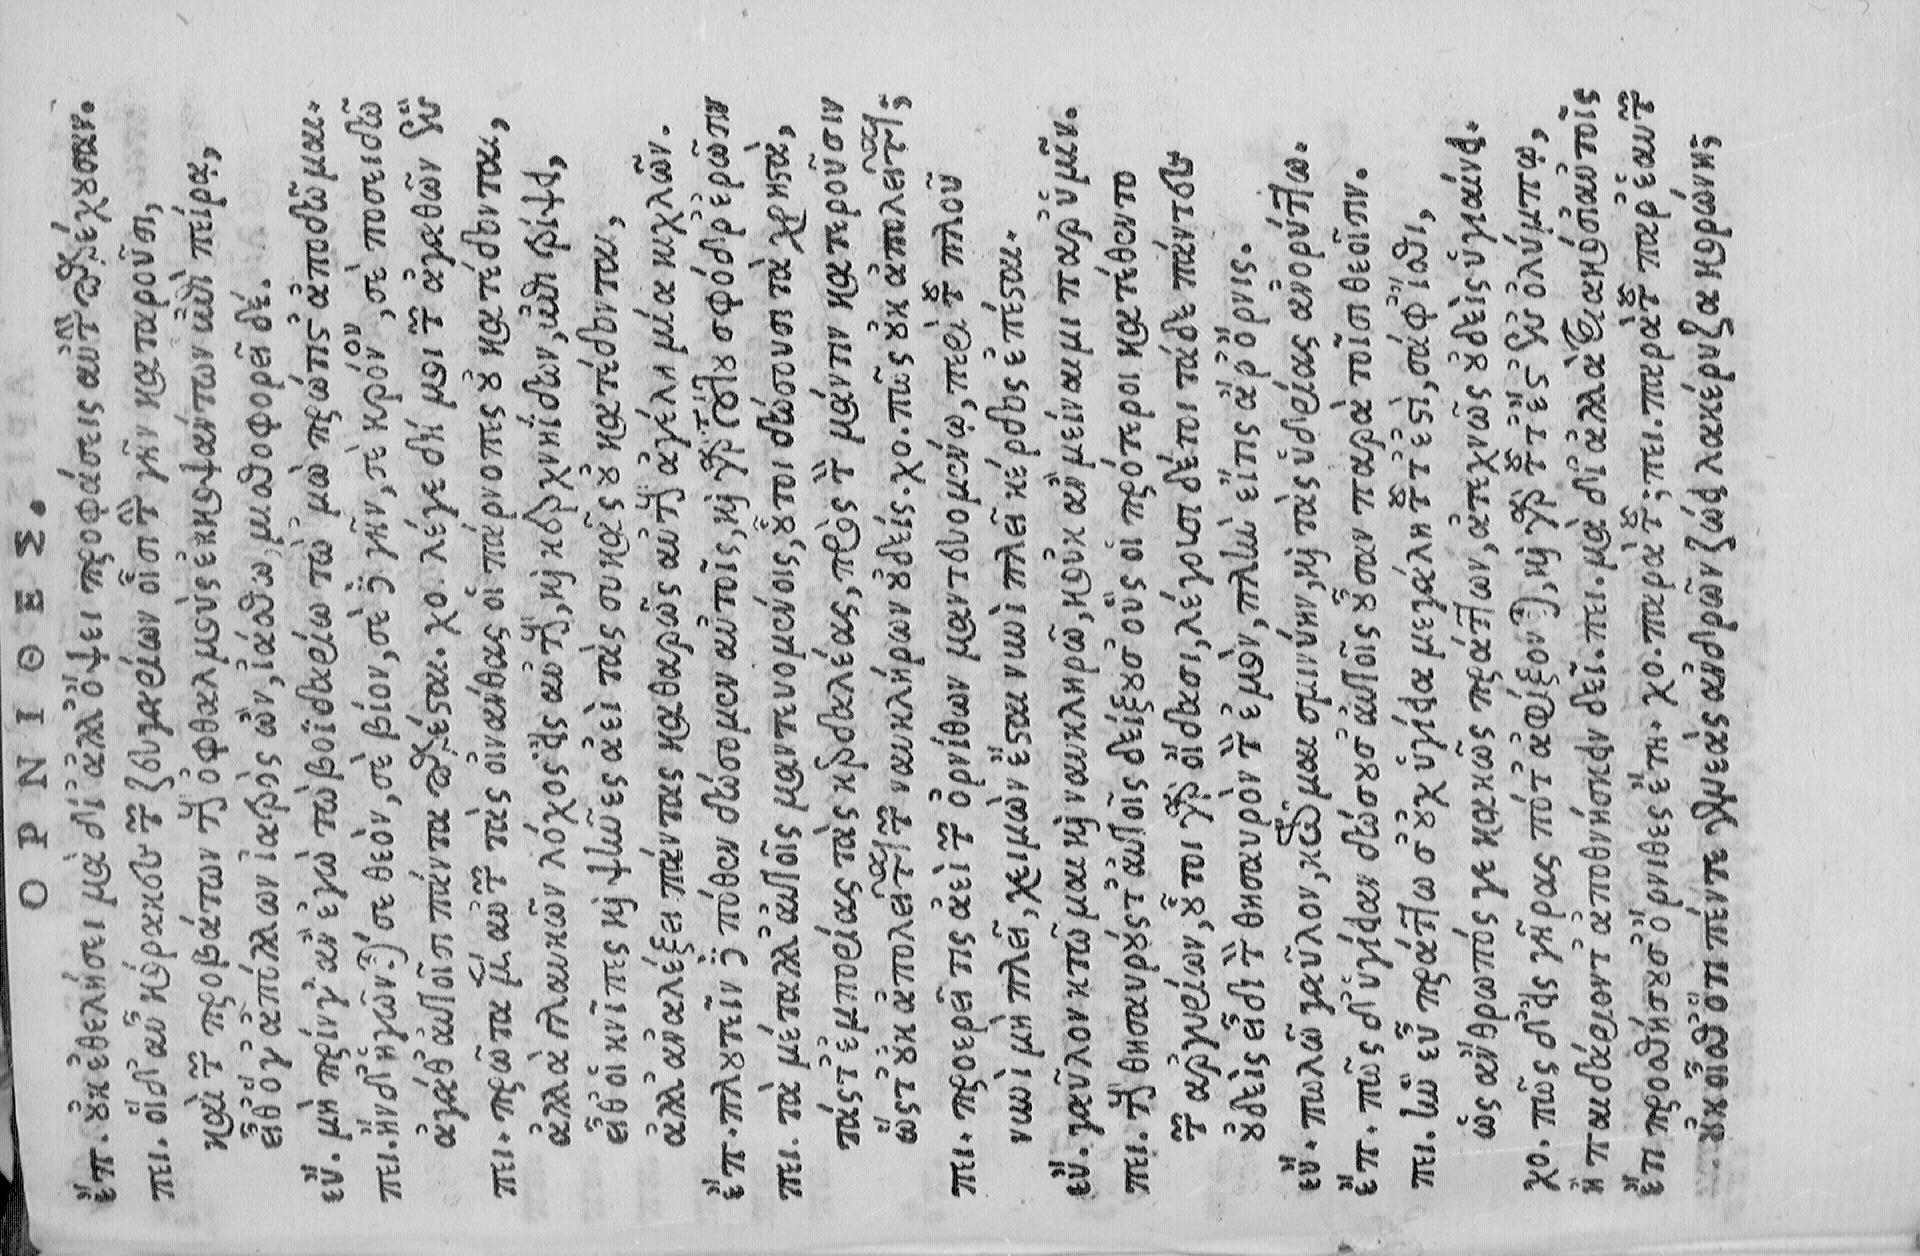 ΟΡΝΙΘΕΣ.
ἔπ. οὐκ ἐθελήσει μὰ δί' ἀλλ' ὄψει προφάσεις αὐτὴν παρέχουσαν.
πει. οἱ δ' αὖ κόρακες τῶν ζευγαρίων οἷσι τὴν γῆν καταροῦσι,
καὶ τῶν προβάτων τοὺς ὀφθαλμοὺς ἐκκοψάντων ἐπὶ πείρᾳ,
εἶθ' ὅγ' ἀπόλλων ἰατρὸς ὢν, ἰάσθω, μισθοφορεῖ δέ.
εὔ. μὴ πρίν γ' ἂν ἐγὼ τὼ βοϊδαρίω τὼ μὼ πρώτιστ' ἀποδῶμαι.
πει. ἢν δ' ἡγῶνται σε θεὸν, σὲ βίον, σὲ δὲ γῆν, σὲ κρόνον, σὲ ποσειδῶ
ἀγάθ' αὐτοῖσι πάντα παρέσται. χο. λέγε δή μοι τῶν ἀγαθῶν ἓν
πει. πρῶτα μὲν αὐτῶν τὰς οἰνάνθας οἱ πάρνοπες οὐ κατέδονται,
ἀλλὰ γλαυκῶν λόχος εἷς αὐτοὺς, καὶ κερχνηίδων, ἐπιτρίψει,
εἶθ' οἱ κνῖπες καὶ ψῆνες ἀεὶ τὰς συκᾶς οὐ κατέδονται,
ἀλλ' ἀναλέξει πάντας καθαρῶς αὐτοὺς ἀγέλη μία κιχλῶν.
ἔπ. πλουτεῖν δὲ πόθεν δώσομεν αὐτοῖς, καὶ γὰρ τούτου σφόδρ' ἐρῶσιν
πει. τὰ μέταλλ' αὐτοῖς μαντευομένοις, οὗτοι δώσουσι τὰ χρηστὰ,
τάς τ' ἐμπορίας τὰς κερδαλέας, πρὸς τὸν μάντιν κατεροῦσιν
ὥστ' οὐκ ἀπολεῖται τῶν ναυκλήρων οὐδείς. χο. πῶς οὐκ ἀπολεῖται;
πει. προερεῖ τις ἀεὶ τῶν ὀρνίθων μαντευομένῳ, περὶ τοῦ πλοῦ
νυνὶ μὴ πλεῖ, χειμὼν ἔσται νυνὶ πλεῖ κέρδος ἐπέσται.
εὔ. γαῦλον κτῶμαι καὶ ναυκληρῶ, κοὐκ ἂν μείναιμι παρ' ὑμῖν.
πει. τοὺς θησαυρούς τ' αὐτοῖς δείξουσ' οὓς οἱ πρότεροι κατέθεντο
τῶν ἀργυρίων, οὗτοι γὰρ οἴδασι, λέγουσι δέ τοι τάδε πάντες
οὐδεὶς οἶδε τὸν θησαυρὸν τὸν ἐμὸν, πλὴν εἴ τις ἄρ' ὄρνις.
εὔ. πωλῶ γαῦλον, κτῶμαι σμινύην, καὶ τὰς ὑδρίας ἀνορύττω.
ἔπ. πῶς δ' ὑγίειαν δώσουσ' αὐτοῖς οὖσαν παρὰ τοῖσι θεοῖσιν.
πει. ἢν εὖ πράττωσ' οὐχ ὑγίεια μεγάλη τοῦτ' ἐστὶ, σάφ' ἴσθι,
ὡς ἄνθρωπός γε κακῶς πράττων, ἀτεχνῶς οὐδεὶς ὑγιαίνει.
χο. πῶς δ' εἰς γῆρας πότ' ἀφίξονται, καὶ γὰρ τοῦτ' ἔστ' ἐν ὀλύμπῳ,
ἢ παιδάριοντ' ἀποθνήσκειν δεῖ. πει. μὰ δί' ἀλλὰ τριακόσι' αὐτοῖς
ἔτι προσθήσουσ' ὄρνιθες ἔτη. χο. παρὰ τοῦ; πει. παρὰ τοῦ παρ' ἑαυτῶν
οὐκ οἶσθ' ὅτι πέντε γενεὰς ἀνδρῶν ζώει λακέρυζα κορώνη;